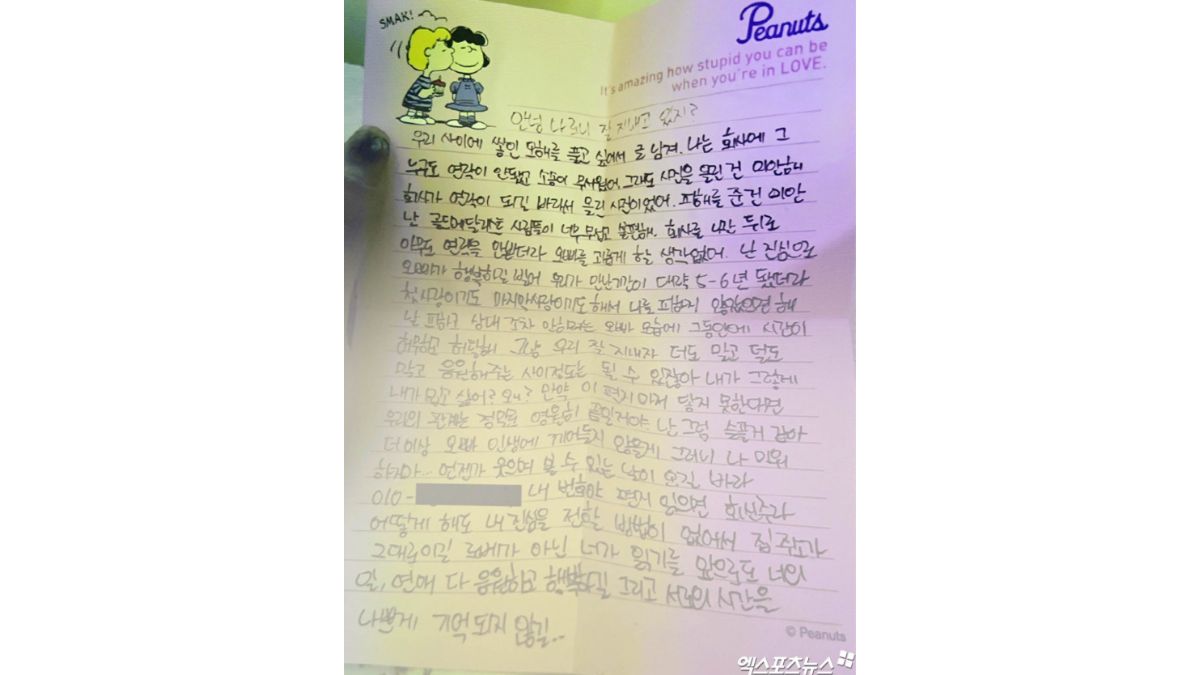 SMAK!
Peanuts
It's amazing how stupid you can be
when you're in LOVE.
안녕 나 잘 지내고 있지?
우리 사이에 쌓인 오해를 풀고 싶어서 글 남겨. 나는 회사에 그
누구도 연락이 안됐고 소송이 무서웠어. 그래도 사진을 올린 건 미안해
회사가 연락이 되길 바라서 올린 사진이었어. 피해를 준건 미안
난 골드메달리스트 사람들이 너무 무섭고 불편해. 회사를 나간 뒤로
아무도 연락을 안받더라 오빠를 괴롭게 할 생각없어. 난 진심으로
오빠가 행복하길 빌어 우리가 만난기간이 대략 5-6년 됐더라
첫사랑이기도 마지막사랑이기도해서 나를 피하지 않았으면 해
날 피하고 상대 조차 안하려는 오빠 모습에 그동안에 시간이
허무하고 허탈해 그냥 우리 잘 지내자 더도 말고 덜도
말고 응원해주는 사이정도는 될 수 있잖아 내가 그렇게
내가 밉고 싫어? 왜? 만약 이 편지마저 닿지 못한다면
우리의 관계는 정말로 영원히 끝일거야. 난 그럼 슬플거 같아
더이상 오빠 인생에 끼어들지 않을게 그러니 나 미워
하지마... 언젠가 웃으며 볼 수 있는 날이 오길 바라
010- 내 번호야 편지 읽으면 회신주라
어떻게 해도 내 진심을 전할 방법이 없어서 집 주소가
그대로이길 로베가 아닌 너가 읽기를 앞으로도 너의
일, 연애 다 응원하고 행복하길 그리고 서로의 시간을
나쁘게 기억되지 않길..
© Peanuts
엑스포츠뉴스